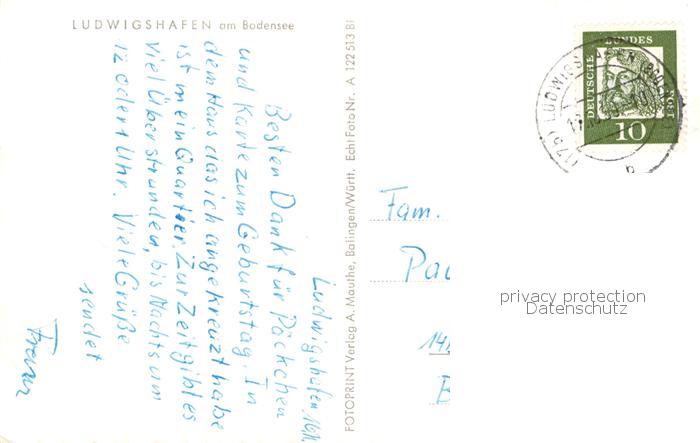 LUDWIGSHAFEN am Bodensee
Ludwigshafen,
Besten Dank für Päckchen
und Karte zum Geburtstag. In
dem Haus das ich angekreuzt habe
ist mein Quartier. Zur Zeit gibt es
viel Überstunden, bis Nachts um
12 oder 1 Uhr. Viele Grüße
sendet
Franz
FOTOPRINT Verlag A. Mauthe, Balingen/Württ. Echt Foto Nr. A 122 513 BI
DEUTSCHE BUNDES
10
LUDWIGSHAFEN
Fam.
privacy protection
Datenschutz